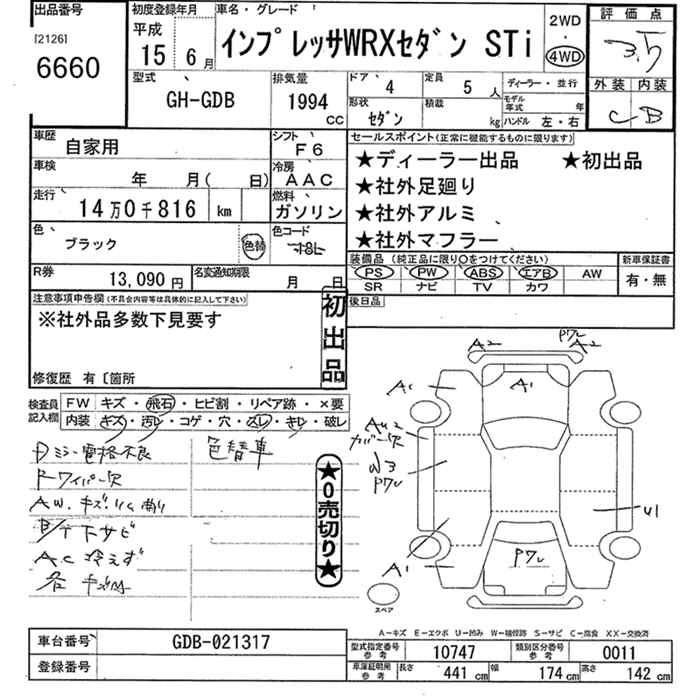 出品番号
[2126]
6660
初度登録年月
平成
15年
6月
車名・グレード
インプレッサWRXセダン STi
2WD
・
4WD
評価点
3.5
外装 内装
C B
型式
GH-GDB
排気量
1994
CC
ドア
4
定員
5人
ディーラー・並行
形状
セダン
積載
kg
モデル年式
年
ハンドル 左・右
車歴
自家用
シフト
F6
車検
年 月( 日)
冷房
AAC
走行
14万0千816 km
燃料
ガソリン
色
ブラック
色替
色コード
R券
13,090円
名変通知期限
月 日
セールスポイント(正常に機能するものに限ります)
★ディーラー出品 ★初出品
★社外足廻り
★社外アルミ
★社外マフラー
装備品(純正品に限り○をつけてください)
新車保証書
PS PW ABS エアB AW
SR ナビ TV カワ
有・無
後日品
注意事項申告欄(不具合内容等は具体的に記入して下さい)
※社外品多数下見要す
修復歴 有〔箇所
初出品
検査員記入欄
FW キズ・飛石・ヒビ割・リペア跡・×要
内装 キズ・汚レ・コゲ・穴・スレ・キレ・破レ
色替車
ワイパー欠
下サビ
AC冷えず
★0売切り★
A2
A2
A1
A1
カバー欠
W3
U1
A1
スペア
A−キズ E−エクボ U−凹み W−補修跡 S−サビ C−腐食 XX−交換済
車台番号
GDB-021317
登録番号
型式指定番号 参考
10747
類別区分番号 参考
0011
車庫証明用 参考
長さ 441 cm
幅 174 cm
高さ 142 cm